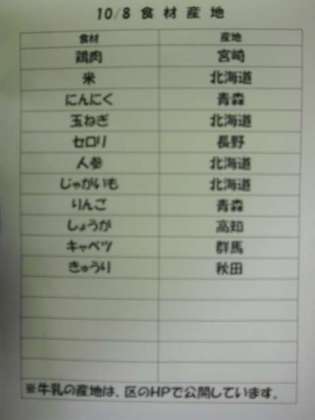 10/8 食材産地
食材 産地
鶏肉 宮崎
米 北海道
にんにく 青森
玉ねぎ 北海道
セロリ 長野
人参 北海道
じゃがいも 北海道
りんご 青森
しょうが 高知
キャベツ 群馬
きゅうり 秋田
※牛乳の産地は、区のHPで公開しています。